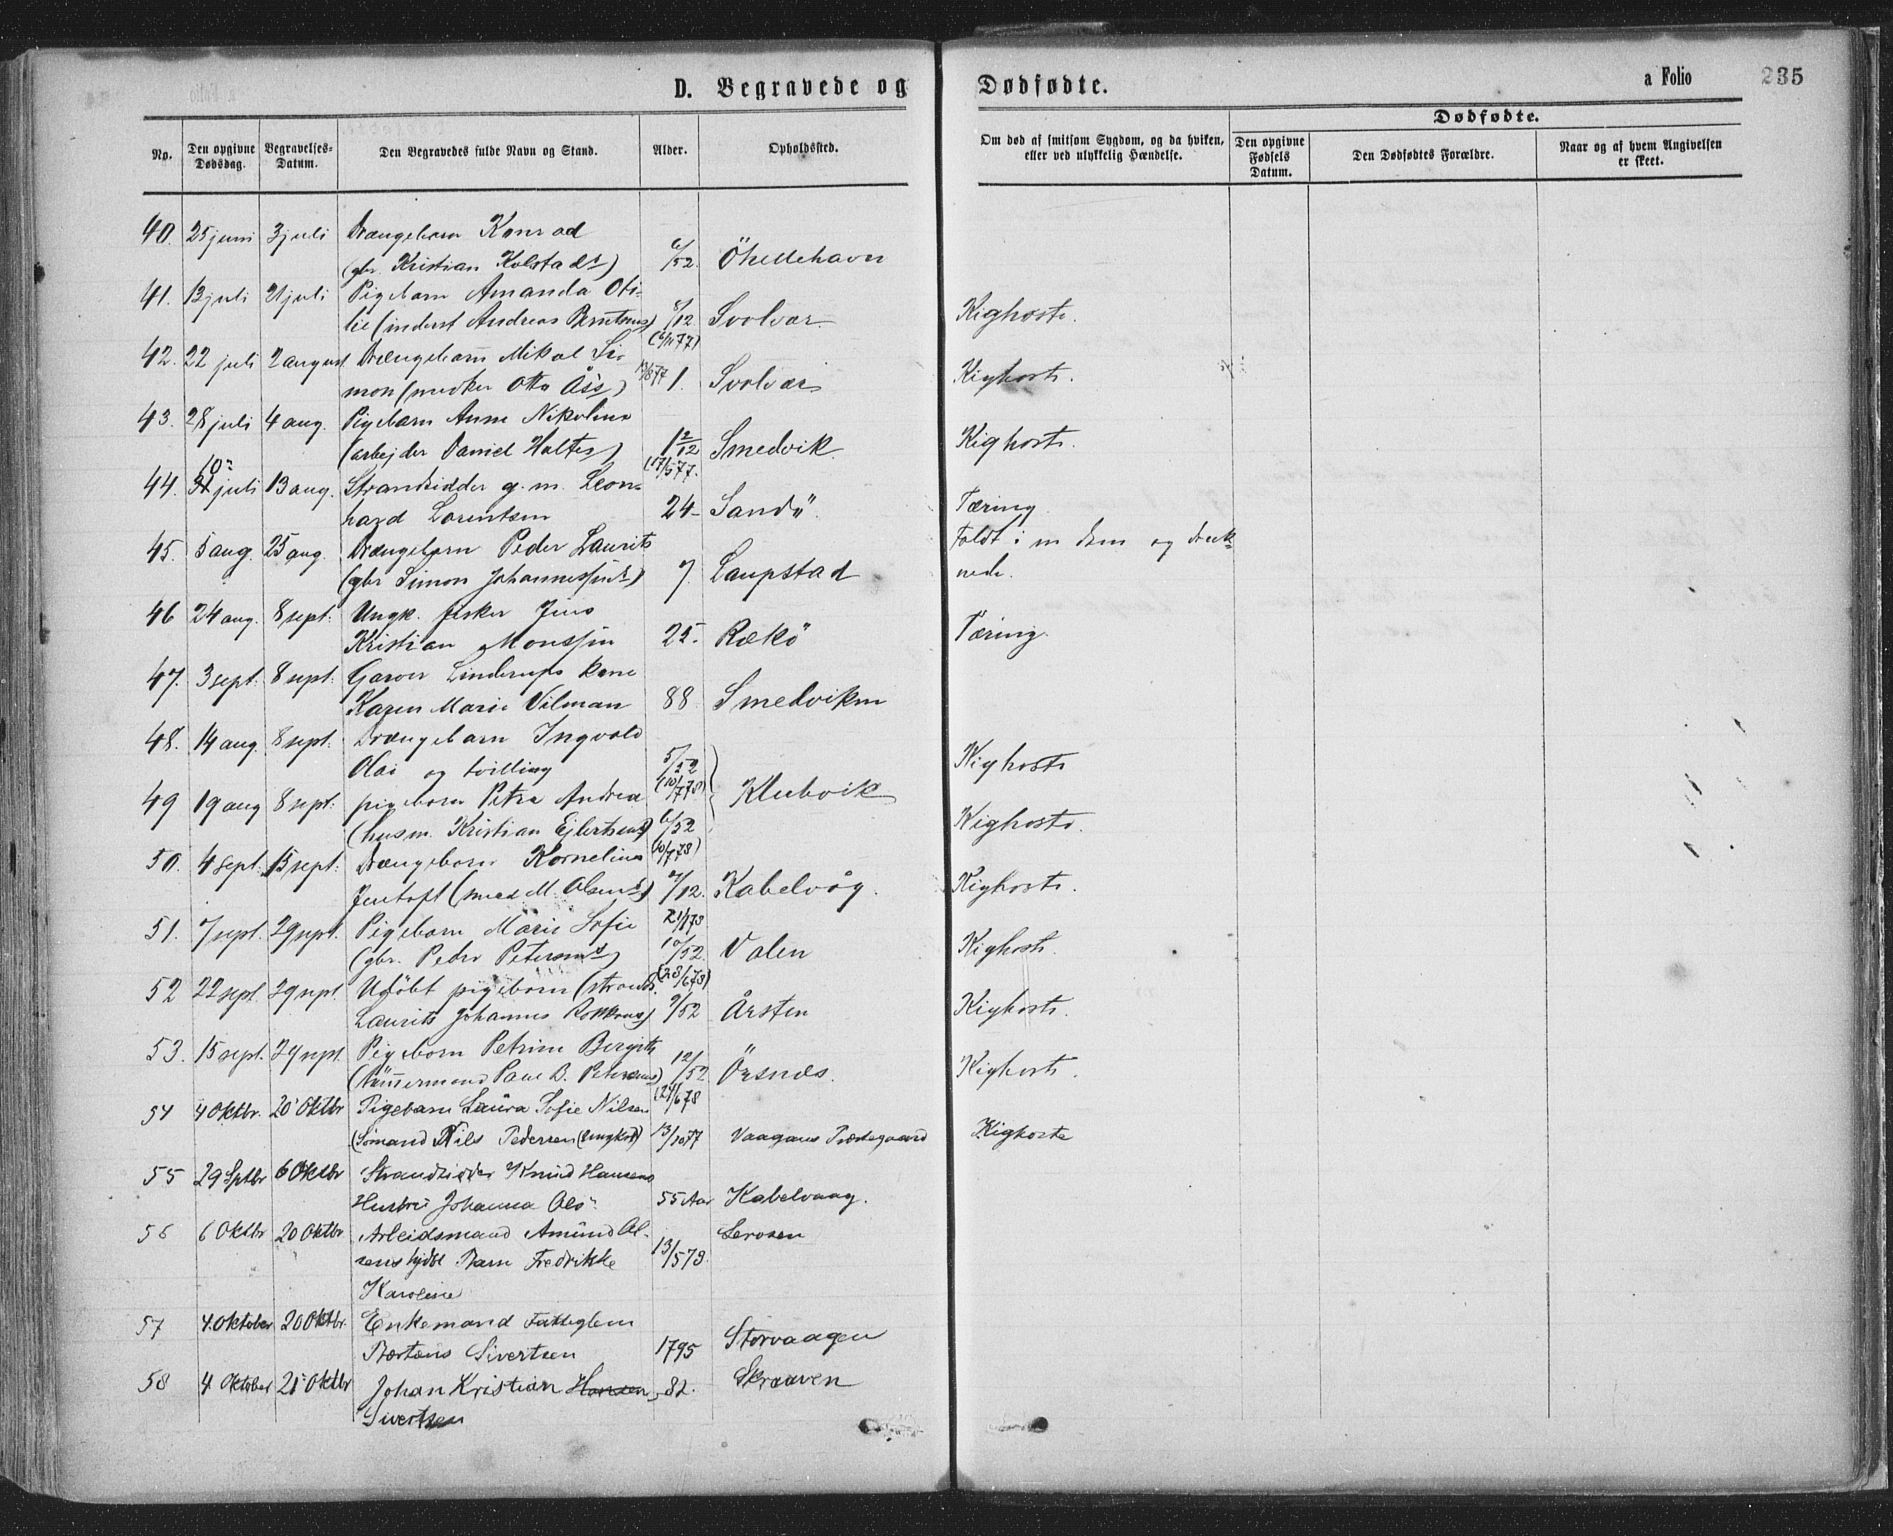 D. Begravede og Dødfødte.
a Folio 235
No.
Den opgivne Dødsdag.
Begravelses-Datum.
Den Begravedes fulde Navn og Stand.
Alder.
Opholdssted.
Om død af smitsom Sygdom, og da hviken, eller ved ulykkelig Hændelse.
Dødfødte.
Den opgivne Fødsels Datum.
Den Dødfødtes Forældre.
Naar og af hvem Angivelsen er skeet.
40. 25 juni 3 juli Drængebarn Konrad
(gbr. Kristian Kolstads) 6/52.
41. 13 juli 21 juli Pigebarn Amanda Oti-
lie (inderst Andreas Berntsens) 8/12 Svolvær. Kighoste.
42. 22 juli 2 august Drængebarn Mikal Si-
mon (snedker Otto Ås's) 1. Svolvær Kighoste.
43. 28 juli 4 aug. Pigebarn Anne Nikoline
(arbejder Daniel Holtes) 1 2/12 Smedvik Kighoste.
44. 31 juli 13 aug. Strandsidder g.m. Leon-
hard Lorentsen 24 Sandö. Tæring.
45. 5 aug. 25 aug. Drængebarn Peder Laurits Faldt i en dam og druk-
(gbr Simon Johannessens) 7. Laupstad nede.
46 24 aug. 8 sept. Ungk. fisker Jens
Kristian Monssen 25. Rækö Tæring.
47. 3 sept. 8 sept. Garver Linderups kone
Karen Marie Vilman 88 Smedviken
48. 14 aug. 8 sept. Drængebarn Ingvald
Olai og tvilling 5/52 Kighoste
49 19 aug 8 sept. pigebarn Petra Andrea (10/7 78) Klubvik
(husm. Kristian Ejlertsens) 6/52 Kighoste.
50. 4 sept. 15 sept. Drængebarn Kornelius (10/7 78)
Jentoft (M. Olsens) /12. Kabelvåg. Kighoste.
51. 7 sept. 29 sept. Pigebarn Marie Sofie
(gbr. Peder Petersens) 10/52. Valen Kighoste.
52 22 sept. 29 sept. Udöbt pigebarn (strands. (28/6 78)
Laurits Johannes) 2/52 Årsten Kighoste.
53. 15 sept. 29 sept. Pigebarn Petrine Bergitte
(Tömmermand Paul B. Petersens) 12/52 Örsnes. Kighoste.
54 4 Oktbr. 20 Oktbr Pigebarn Laura Sofie Nilsen (24/6 78
(Sömand Nils Pedersen (Ungkar)) 13/10 77 Vaagans Præstegaard Kighoste
55 29 Sptbr 6 Oktbr Strandsidder Knud Hansens
Hustru Johanna Ols: 55 Aar Kabelvaag.
56 6 Oktbr 20 Oktbr Arbeidsmand Amund Ol-
sens Barn Fredrikke 13/5 78.
Karoline
57 4. Oktober 20 Oktbr. Enkemand Fattiglem
Sivertsen 1795 Storvaagen
58 4 Oktober 21 Oktbr Johan Kristian Hansen 82. Skraaven
Sivertsen